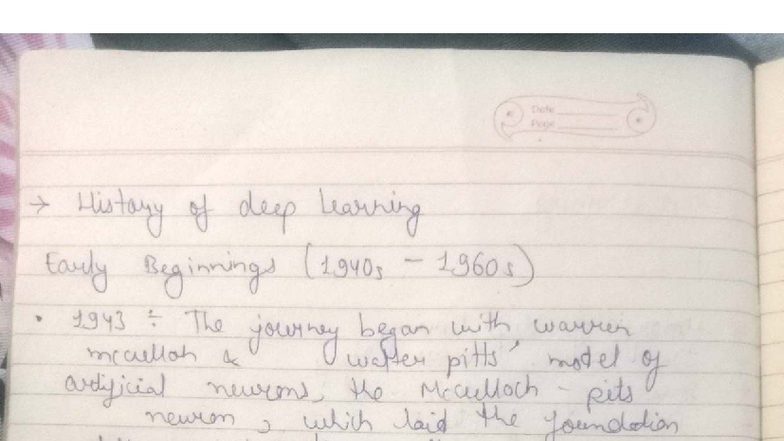 Date
Page
→ History of deep learning
Early Beginnings (1940s - 1960s)
• 1943 ÷ The journey began with warren
mcculloh & walter pitts' model of
artificial neurons, the McCulloch - pits
neuron, which laid the foundation